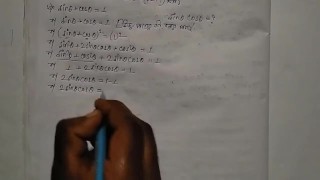 sinθ + cosθ = 1
sinθ cosθ = ?
⇒ (sinθ + cosθ)² = (1)²
⇒ sin²θ + 2sinθ·cosθ + cos²θ = 1
⇒ sin²θ + cos²θ + 2sinθcosθ = 1
⇒ 1 + 2sinθcosθ = 1
⇒ 2sinθcosθ = 1-1
⇒ 2sinθcosθ =